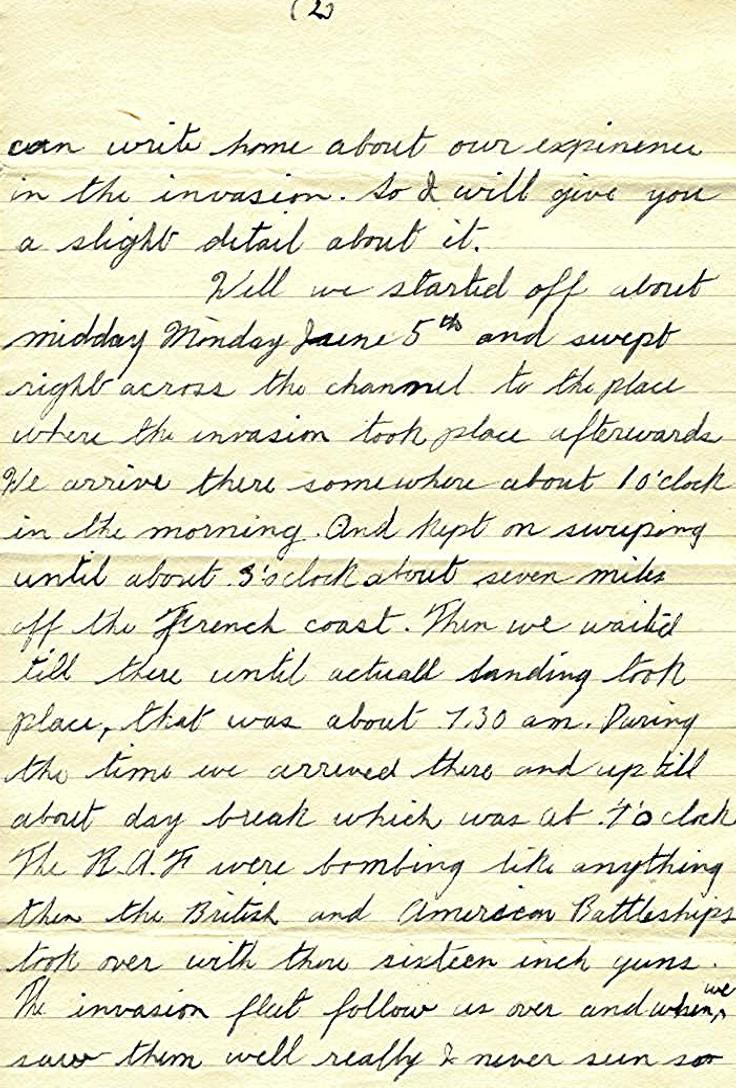 (2)
can write home about our expinence
in the invasion. So I will give you
a slight detail about it.
Well we started off about
midday Monday June 5th and swept
right across the channel to the place
where the invasion took place afterwards
We arrive there somewhere about 1 o'clock
in the morning. And kept on sweeping
until about 3 o'clock about seven miles
off the French coast. Then we waited
till there until actuall landing took
place, that was about 7.30 am. During
the time we arrived there and up till
about day break which was at o'clock
The R.A.F were bombing like anything
then the British and American Battleships
took over with there sixteen inch guns.
The invasion fleet follow us over and when we
saw them well really I never seen so